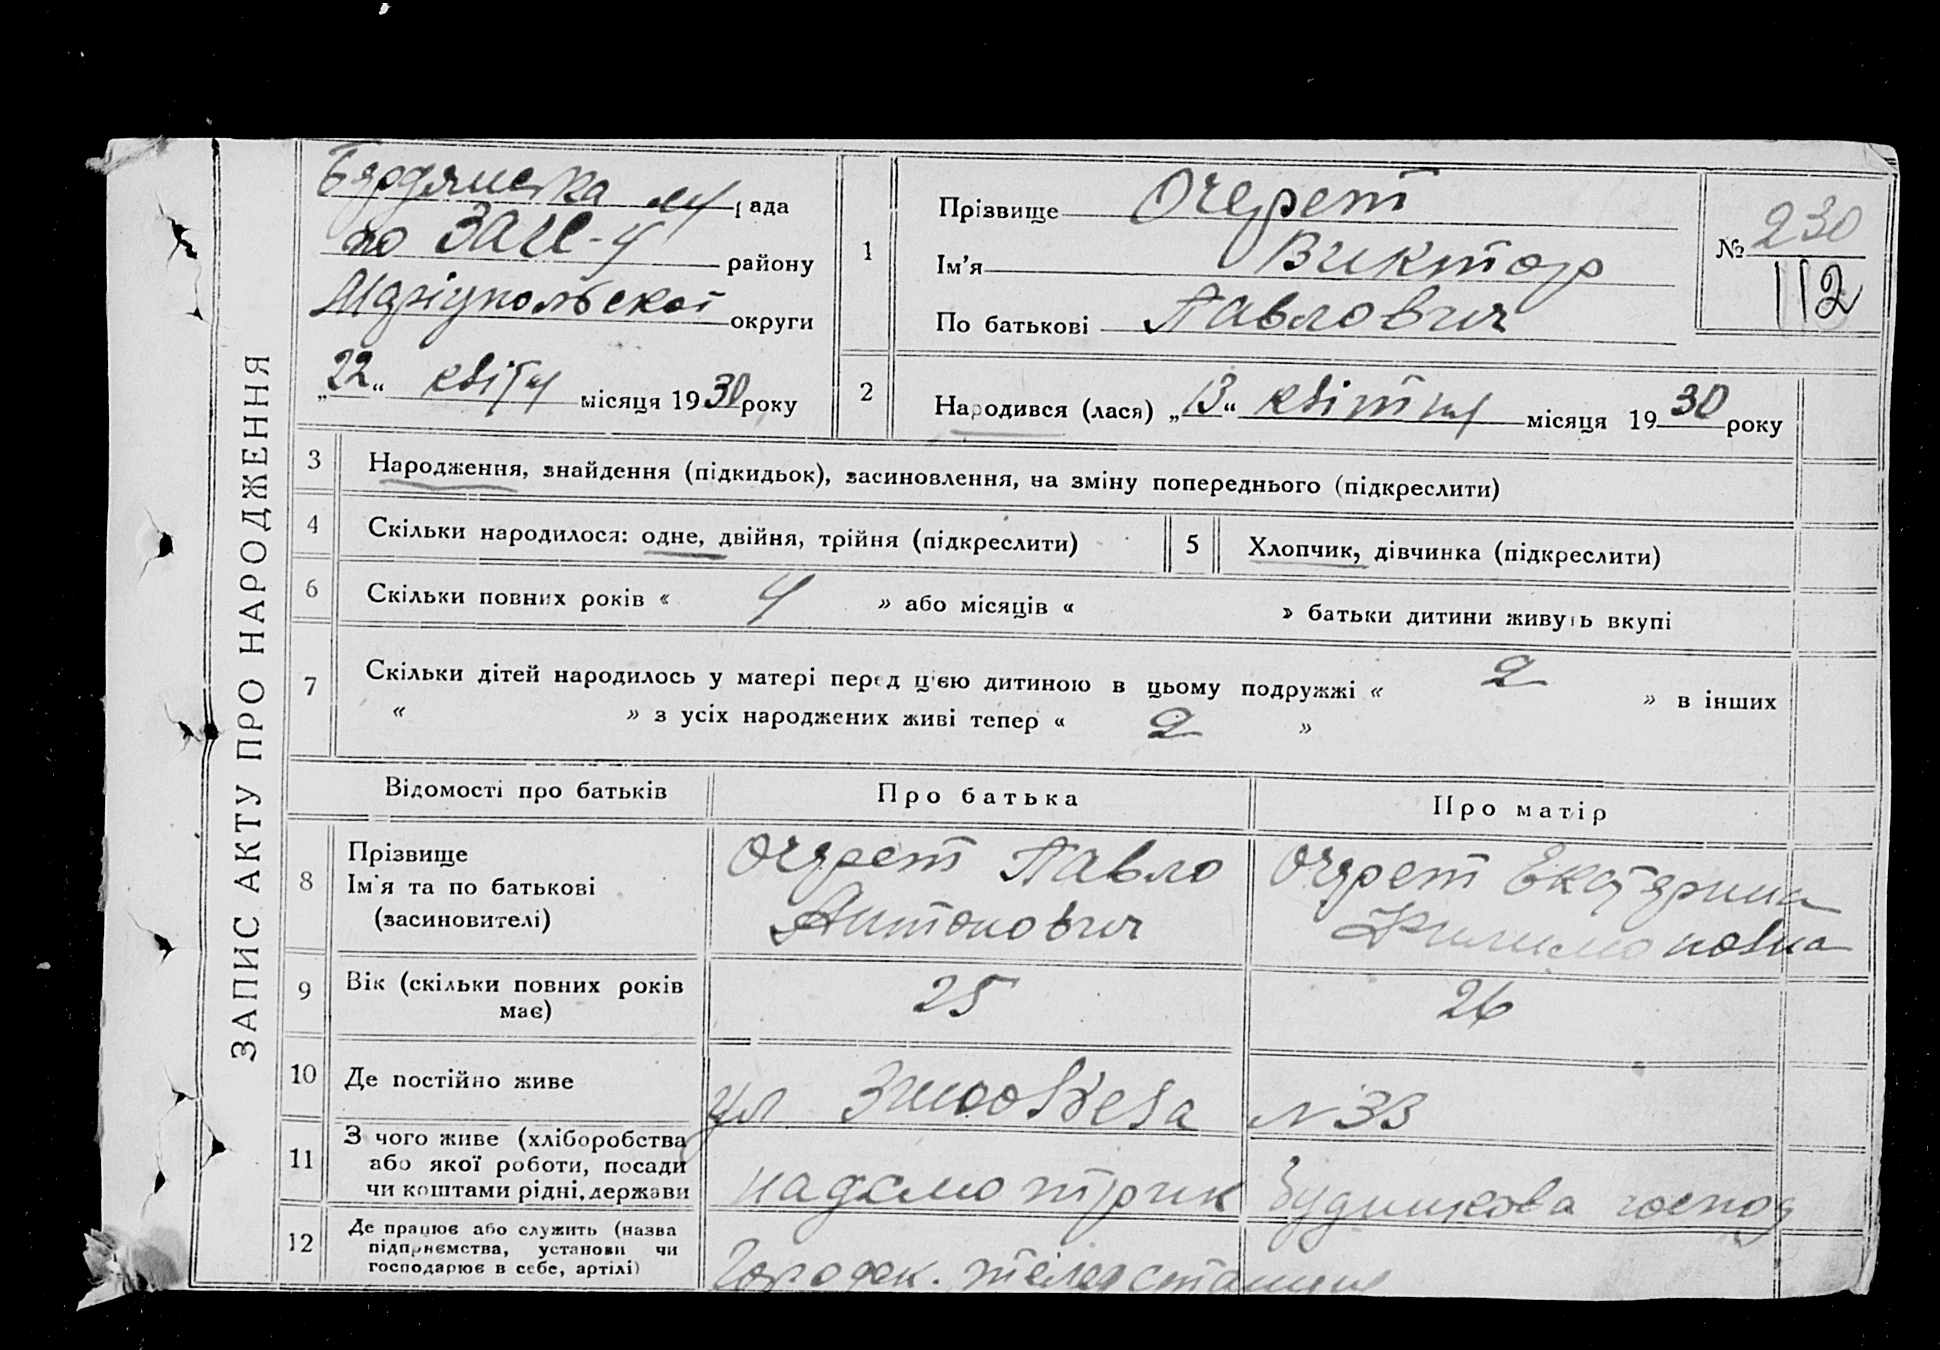 ЗАПИС АКТУ ПРО НАРОДЖЕННЯ
Бердянська рада
по ЗАГС-у району
Маріупольської округи
„22“ квітн місяця 1930 року
1
Прізвище Очерет
Ім'я Виктор
По батькові Павлович
№ 230
112
2
Народився (лася) „13“ квітня місяця 1930 року
3 Народження, знайдення (підкидьок), засиновлення, на зміну попереднього (підкреслити)
4 Скільки народилося: одне, двійня, трійня (підкреслити)
5 Хлопчик, дівчинка (підкреслити)
6 Скільки повних років « 4 » або місяців « » батьки дитини живуть вкупі
7 Скільки дітей народилось у матері перед цією дитиною в цьому подружжі « 2 » в інших
« » з усіх народжених живі тепер « 2 »
Відомості про батьків Про батька Про матір
8 Прізвище
Ім'я та по батькові
(засиновителі)
Очерет Павло
Антонович
Очерет Екатерина
Филимоновна
9 Вік (скільки повних років
має)
25 26
10 Де постійно живе
ул N 33
11 З чого живе (хліборобства
або якої роботи, посади
чи коштами рідні, держави
надсмотрчик господ
12 Де працює або служить (назва
підприємства, установи чи
господарює в себе, артілі)
Городск. станция